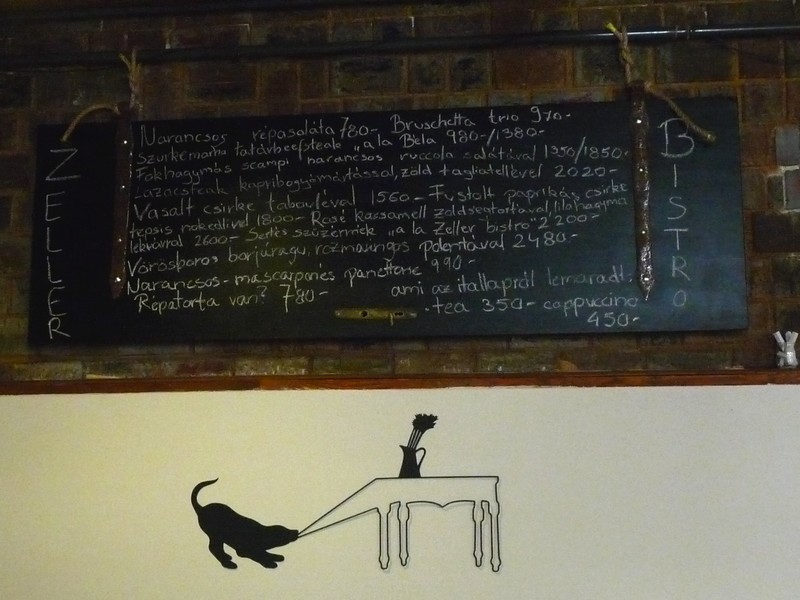 ZELLER
Narancsos répasaláta 780- Bruschetta trio 970-
Szürkemarha tatárbeefsteak "a la Béla 980-/1380-
Fokhagymás scampi narancsos ruccola salátával 1350/1850-
Lazacsteak kapribogyómártással, zöld tagliatellével 2020-
Vasalt csirke taboulével 1560- Füstölt paprikás csirke
tepsis nokedlivel 1800- Rosé kacsamell zöldségtortával, lilahagyma
lekvárral 2600- Sertés szűzérmék "a la Zeller bistro" 2200-
Vörösboros borjúragu, rozmaringos polentával 2480-
Narancsos-mascarpones panettone 990-
Répatorta van? 780-
ami az itallapról lemaradt:
tea 350- cappuccino
450-
BISTRO